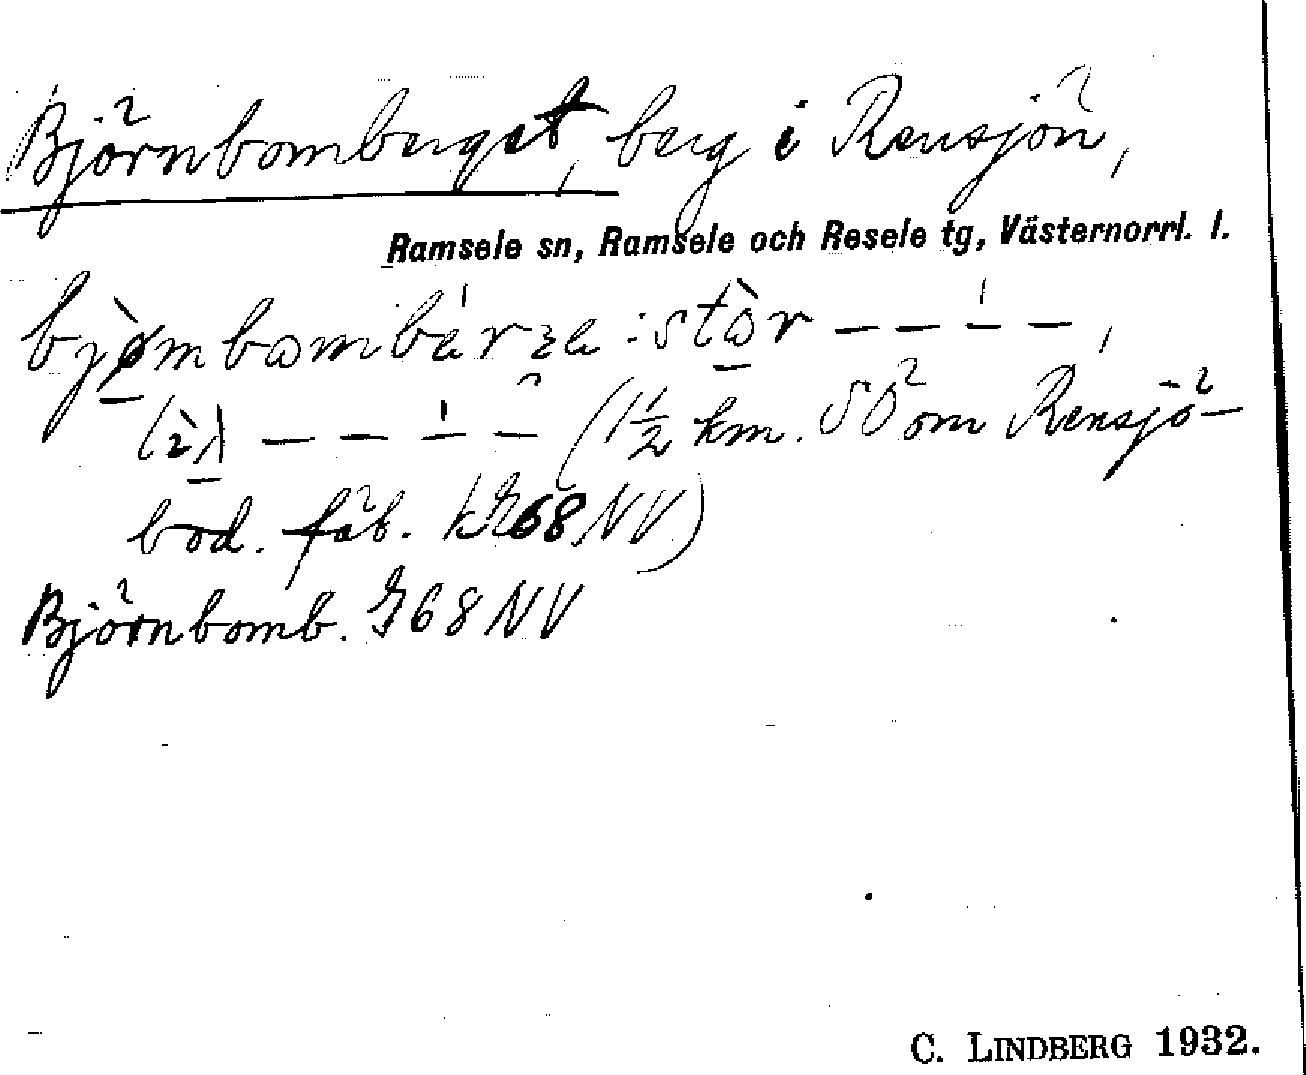 Björnbomberget, berg i Rensjön,
Ramsele sn, Ramsele och Resele tg, Västernorrl. l.
: stòr – – – –,
– – – – (1½ km. SO om Rensjö-
bod. fäb. kZ68NV)
Björnbomb. Z68NV
C. LINDBERG 1932.